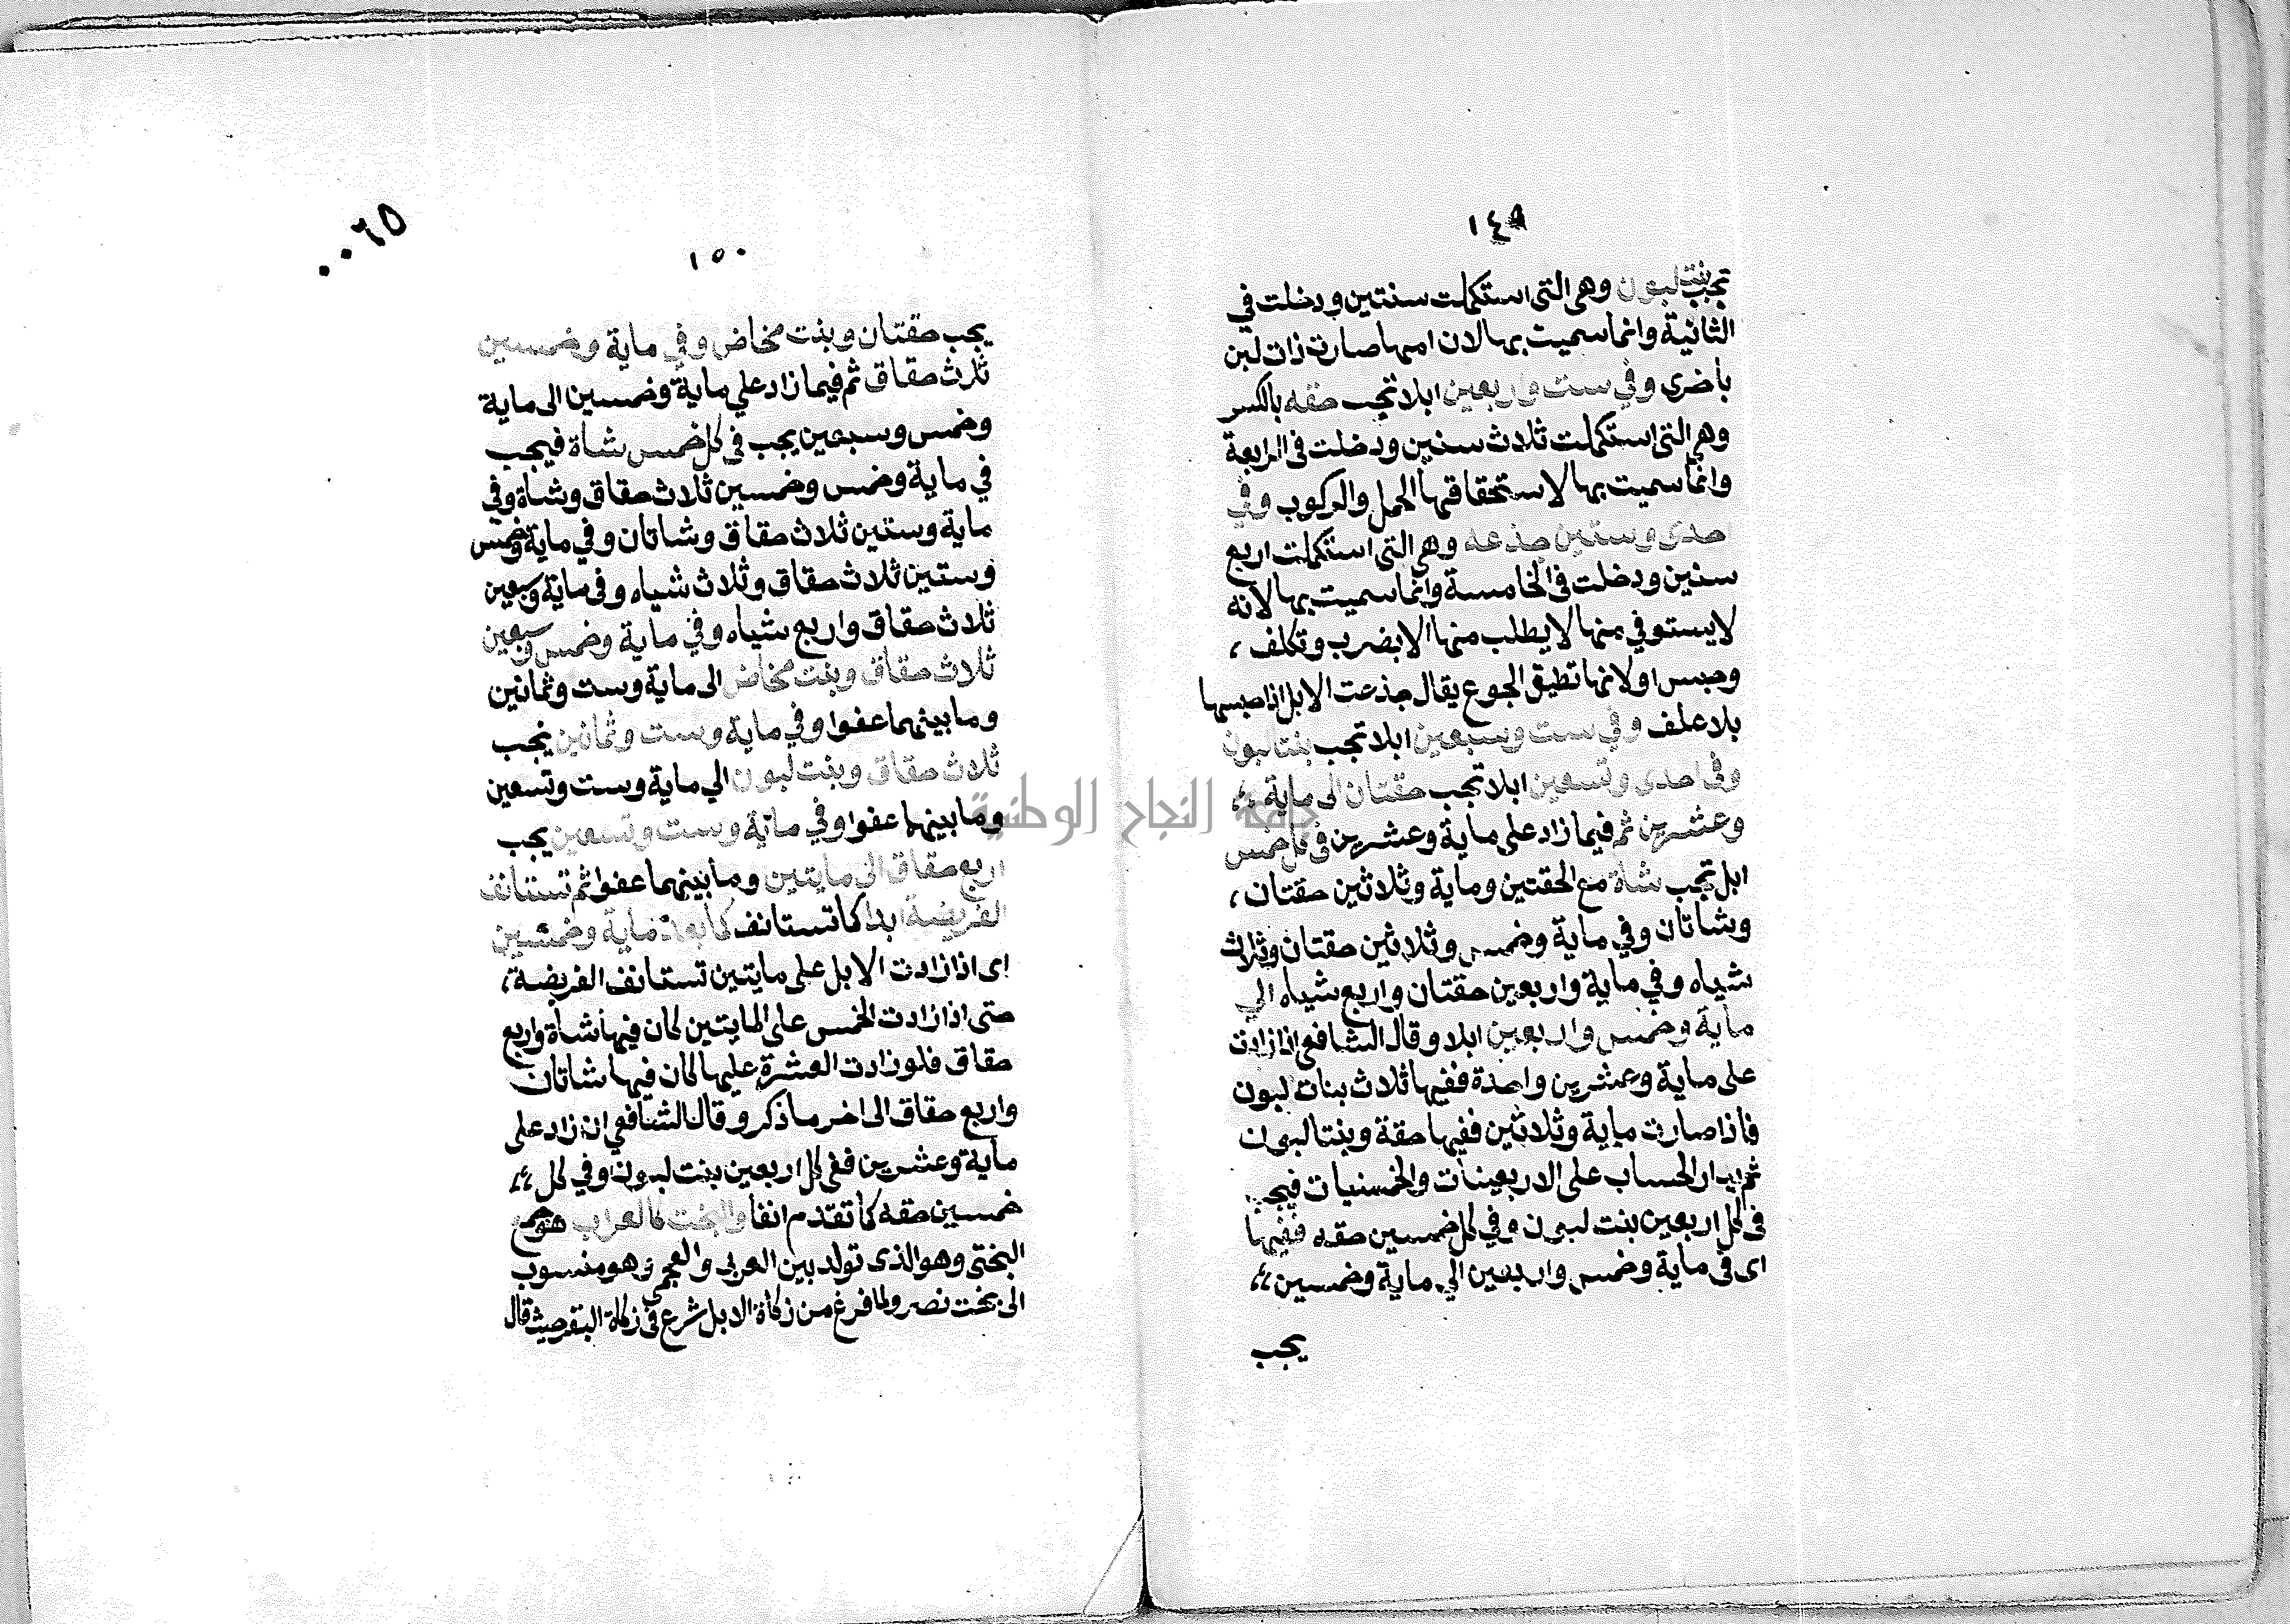 ١٤٩
تجب بنت لبون وهى التى استكملت سنتين ودخلت في
الثانية وانما سميت بها لان امها صارت ذات لبن
بأخرى وفي ست واربعين ابلا تجب حقه بالكسر
وهى التى استكملت ثلاث سنين ودخلت فى الرابعة
وانما سميت بها لاستحقاقها الحمل والركوب وفي
احدى وستين جذعه وهى التى استكملت اربع
سنين ودخلت فى الخامسة وانما سميت بها لانه
لا يستوفي منها لا يطلب منها الا بضرب وتكلف ،
وحبس اولانها تطيق الجوع يقال جذعت الابل اذا حبسها
بلا علف وفي ست وسبعين ابلا تجب بنتا لبون
وفى احدى وتسعين ابلا تجب حقتان الى ماية
وعشرين ثم فيما زاد على ماية وعشرين فى كل خمس
ابل تجب شاة مع الحقتين وماية وثلاثين حقتان ،
وشاتان وفي ماية وخمس وثلاثين حقتان وثلاث
شياه وفي ماية واربعين حقتان واربع شياه الي
ماية وخمس واربعين ابلا وقال الشافعى اذا زادت
على ماية وعشرين واحدة ففيها ثلاث بنات لبون
فاذا صارت ماية وثلاثين ففيها حقة وبنتا لبون
ثم يدار الحساب على الاربعينات والخمسنيات فيجب
فى كل اربعين بنت لبون وفي كل خمسين حقه ففيها
اى فى ماية وخمس واربعين الي ماية وخمسين
يجب
٠٠٦٥
١٥٠
يجب حقتان وبنت مخاض وفي ماية وخمسين
ثلاث حقاق ثم فيما زاد علي ماية وخمسين الى ماية
وخمس وسبعين يجب فى كل خمس شاة فيجب
في ماية وخمس وخمسين ثلاث حقاق وشاة وفي
ماية وستين ثلاث حقاق وشاتان وفي ماية وخمس
وستين ثلاث حقاق وثلاث شياه وفى ماية وسبعين
ثلاث حقاق واربع شياه وفي ماية وخمس وسبعين
ثلاث حقاق وبنت مخاض الى ماية وست وثمانين
وما بينهما عفوا وفي ماية وست وثمانين يجب
ثلاث حقاق وبنت لبون الي ماية وست وتسعين
وما بينهما عفوا وفي ماية وست وتسعين يجب
اربع حقاق الي مايتين وما بينهما عفوا ثم تستانف
الفريضة ابدا كما تستانف كما بعد ماية وخمسين
اى اذا زادت الابل على مايتين تستانف الفريضة ،
حتى اذا زادت الخمس على المايتين كان فيها شاة واربع
حقاق فلو زادت العشرة عليها كان فيها شاتان
واربع حقاق الى اخر ما ذكر وقال الشافعي ان زاد على
ماية وعشرين ففى كل اربعين بنت لبون وفي كل
خمسين حقه كما تقدم انفا والبخت كالعراب هو جمع
البختى وهو الذى تولد بين العربى والعجمى وهو منسوب
الى بخت نصر ولما فرغ من زكاة الابل شرع فى زكاة البقر حيث قال
جامعة النجاح الوطنية